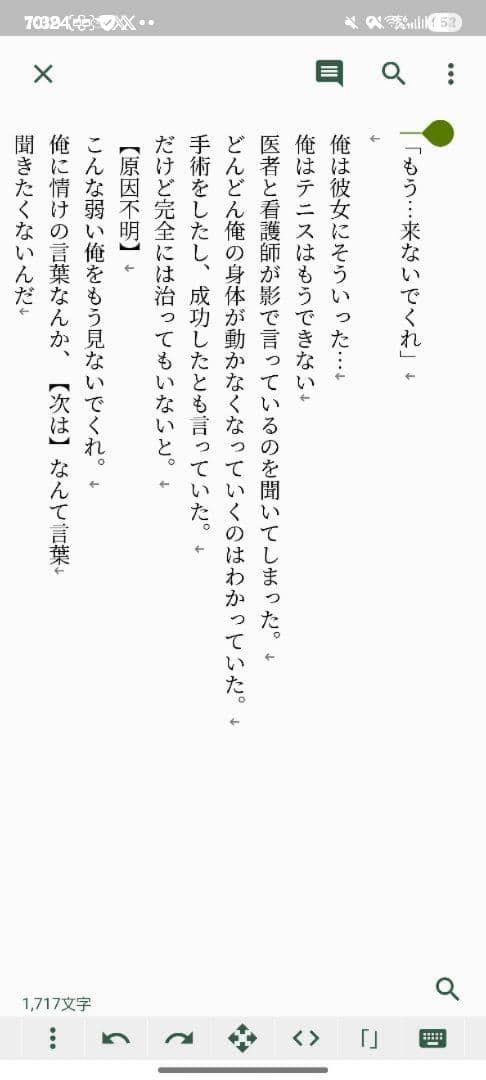 「もう…来ないでくれ」←
←
俺は彼女にそういった…←
俺はテニスはもうできない←
医者と看護師が影で言っているのを聞いてしまった。←
どんどん俺の身体が動かなくなっていくのはわかっていた。←
手術をしたし、成功したとも言っていた。←
だけど完全には治ってもいないと。←
【原因不明】←
こんな弱い俺をもう見ないでくれ。←
俺に情けの言葉なんか、【次は】なんて言葉←
聞きたくないんだ←
1,717文字
「」